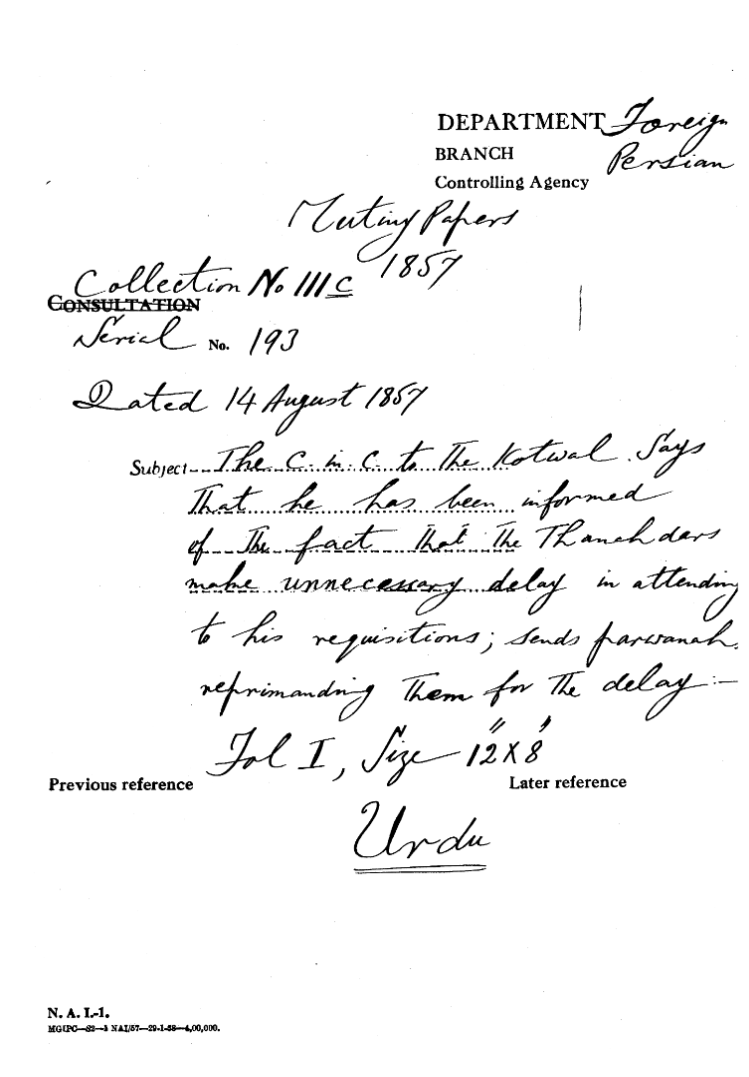 DEPARTMENT Foreign
BRANCH Persian
Controlling Agency
Mutiny Papers
1857
Collection No III C
CONSULTATION
Serial No. 193
Dated 14 August 1857
Subject The C. in. C. to The Kotwal. Says
That he has been informed
of The fact That The Thanahdars
make unnecessary delay in attending
to his requisitions; sends parwanah
reprimanding Them for The delay:—
Fol I, Size 12" X 8'
Previous reference Later reference
Urdu
N. A. I.-1.
MGIPC—S2—3 NAI/57—29-1-58—4,00,000.